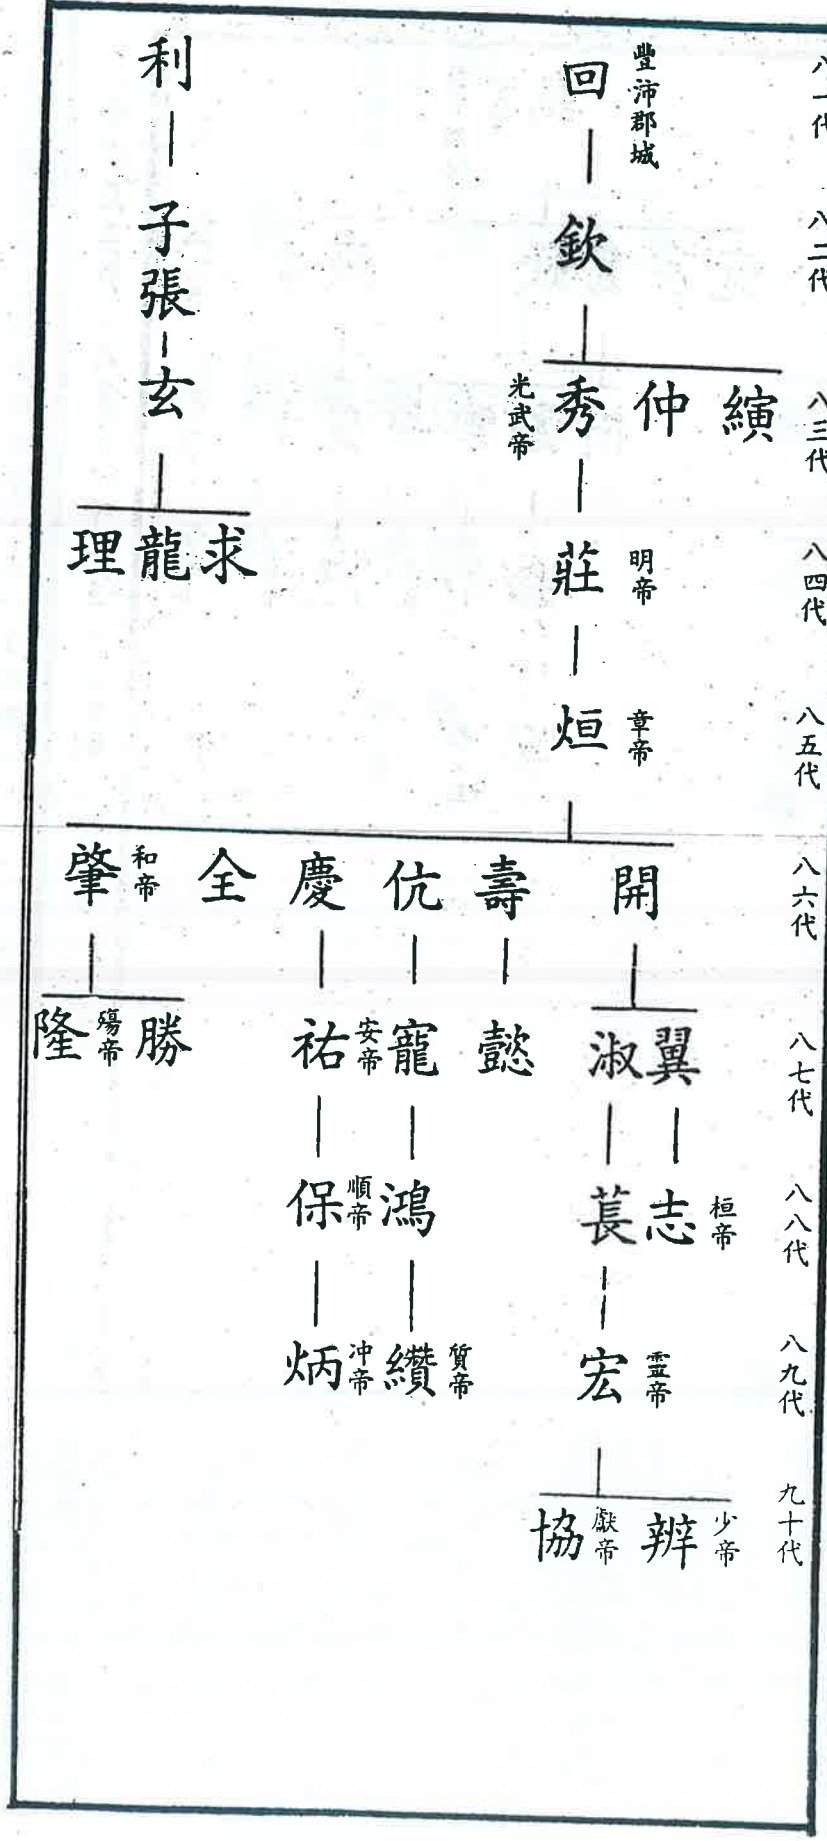 八一代
八二代
八三代
八四代
八五代
八六代
八七代
八八代
八九代
九十代
豐沛郡城
回
欽
縯
仲
秀
光武帝
莊
明帝
烜
章帝
開
壽
伉
慶
全
肇
和帝
翼
淑
懿
寵
祐
安帝
勝
隆
殤帝
志
桓帝
萇
鴻
保
順帝
宏
霊帝
纘
質帝
炳
冲帝
辨
少帝
協
獻帝
利
子張
玄
求
龍
理